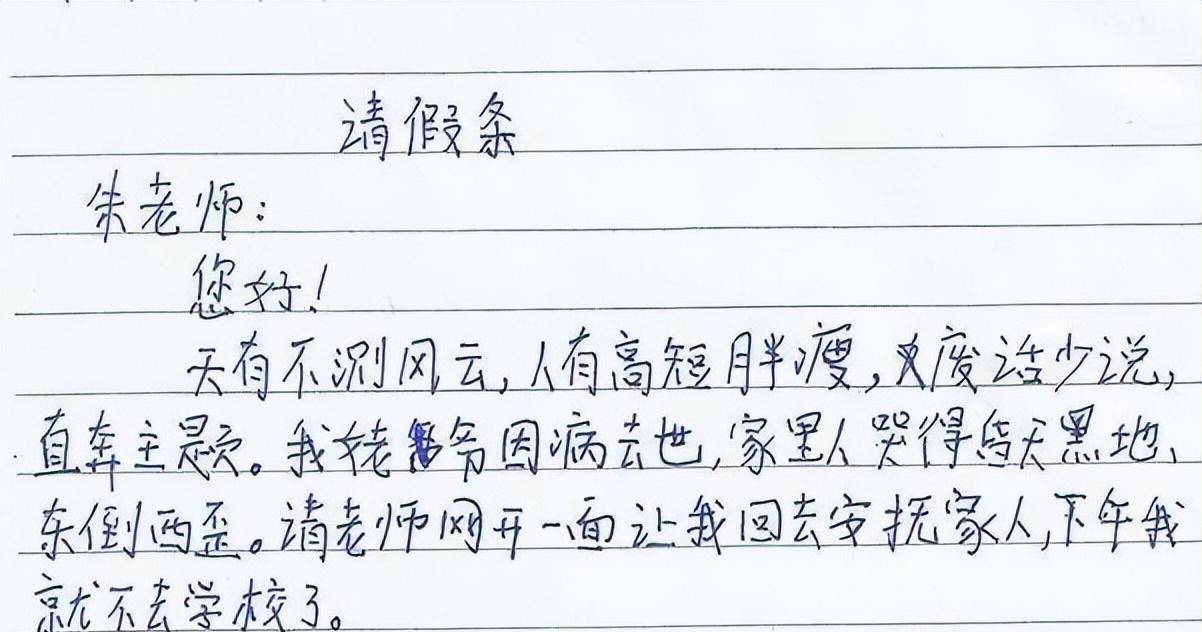 请假条
朱老师:
您好!
天有不测风云,人有高短胖瘦,废话少说,
直奔主题。我姥爷因病去世,家里人哭得昏天黑地、
东倒西歪。请老师网开一面让我回去安抚家人,下午我
就不去学校了。